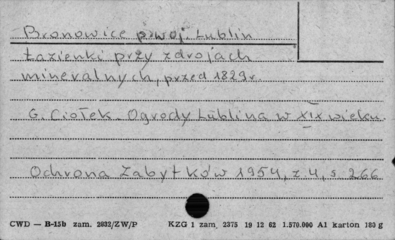 Bronowice p. woj. Lublin
Łazienki przy zdrojach
mineralnych, przed 1829 r.
G. Ciołek. Ogrody Lublina w XIX wieku.
Ochrona Zabytków 1954, z 4, s. 266
CWD — B-15b zam. 2032/ZW/P KZG 1 zam. 2375 19 12 62 1.570.000 A1 karton 180 g